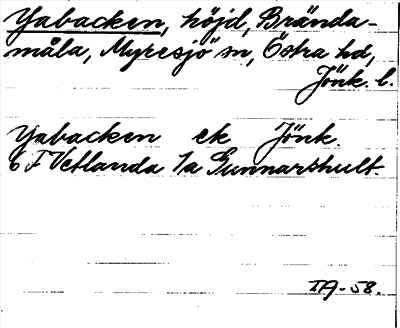 Yabacken, höjd, Brända-
måla, Myresjö sn, Östra hd,
Jönk. l.
Yabacken ek Jönk.
6 F Vetlanda 1a Gunnarshult.
TA-58.